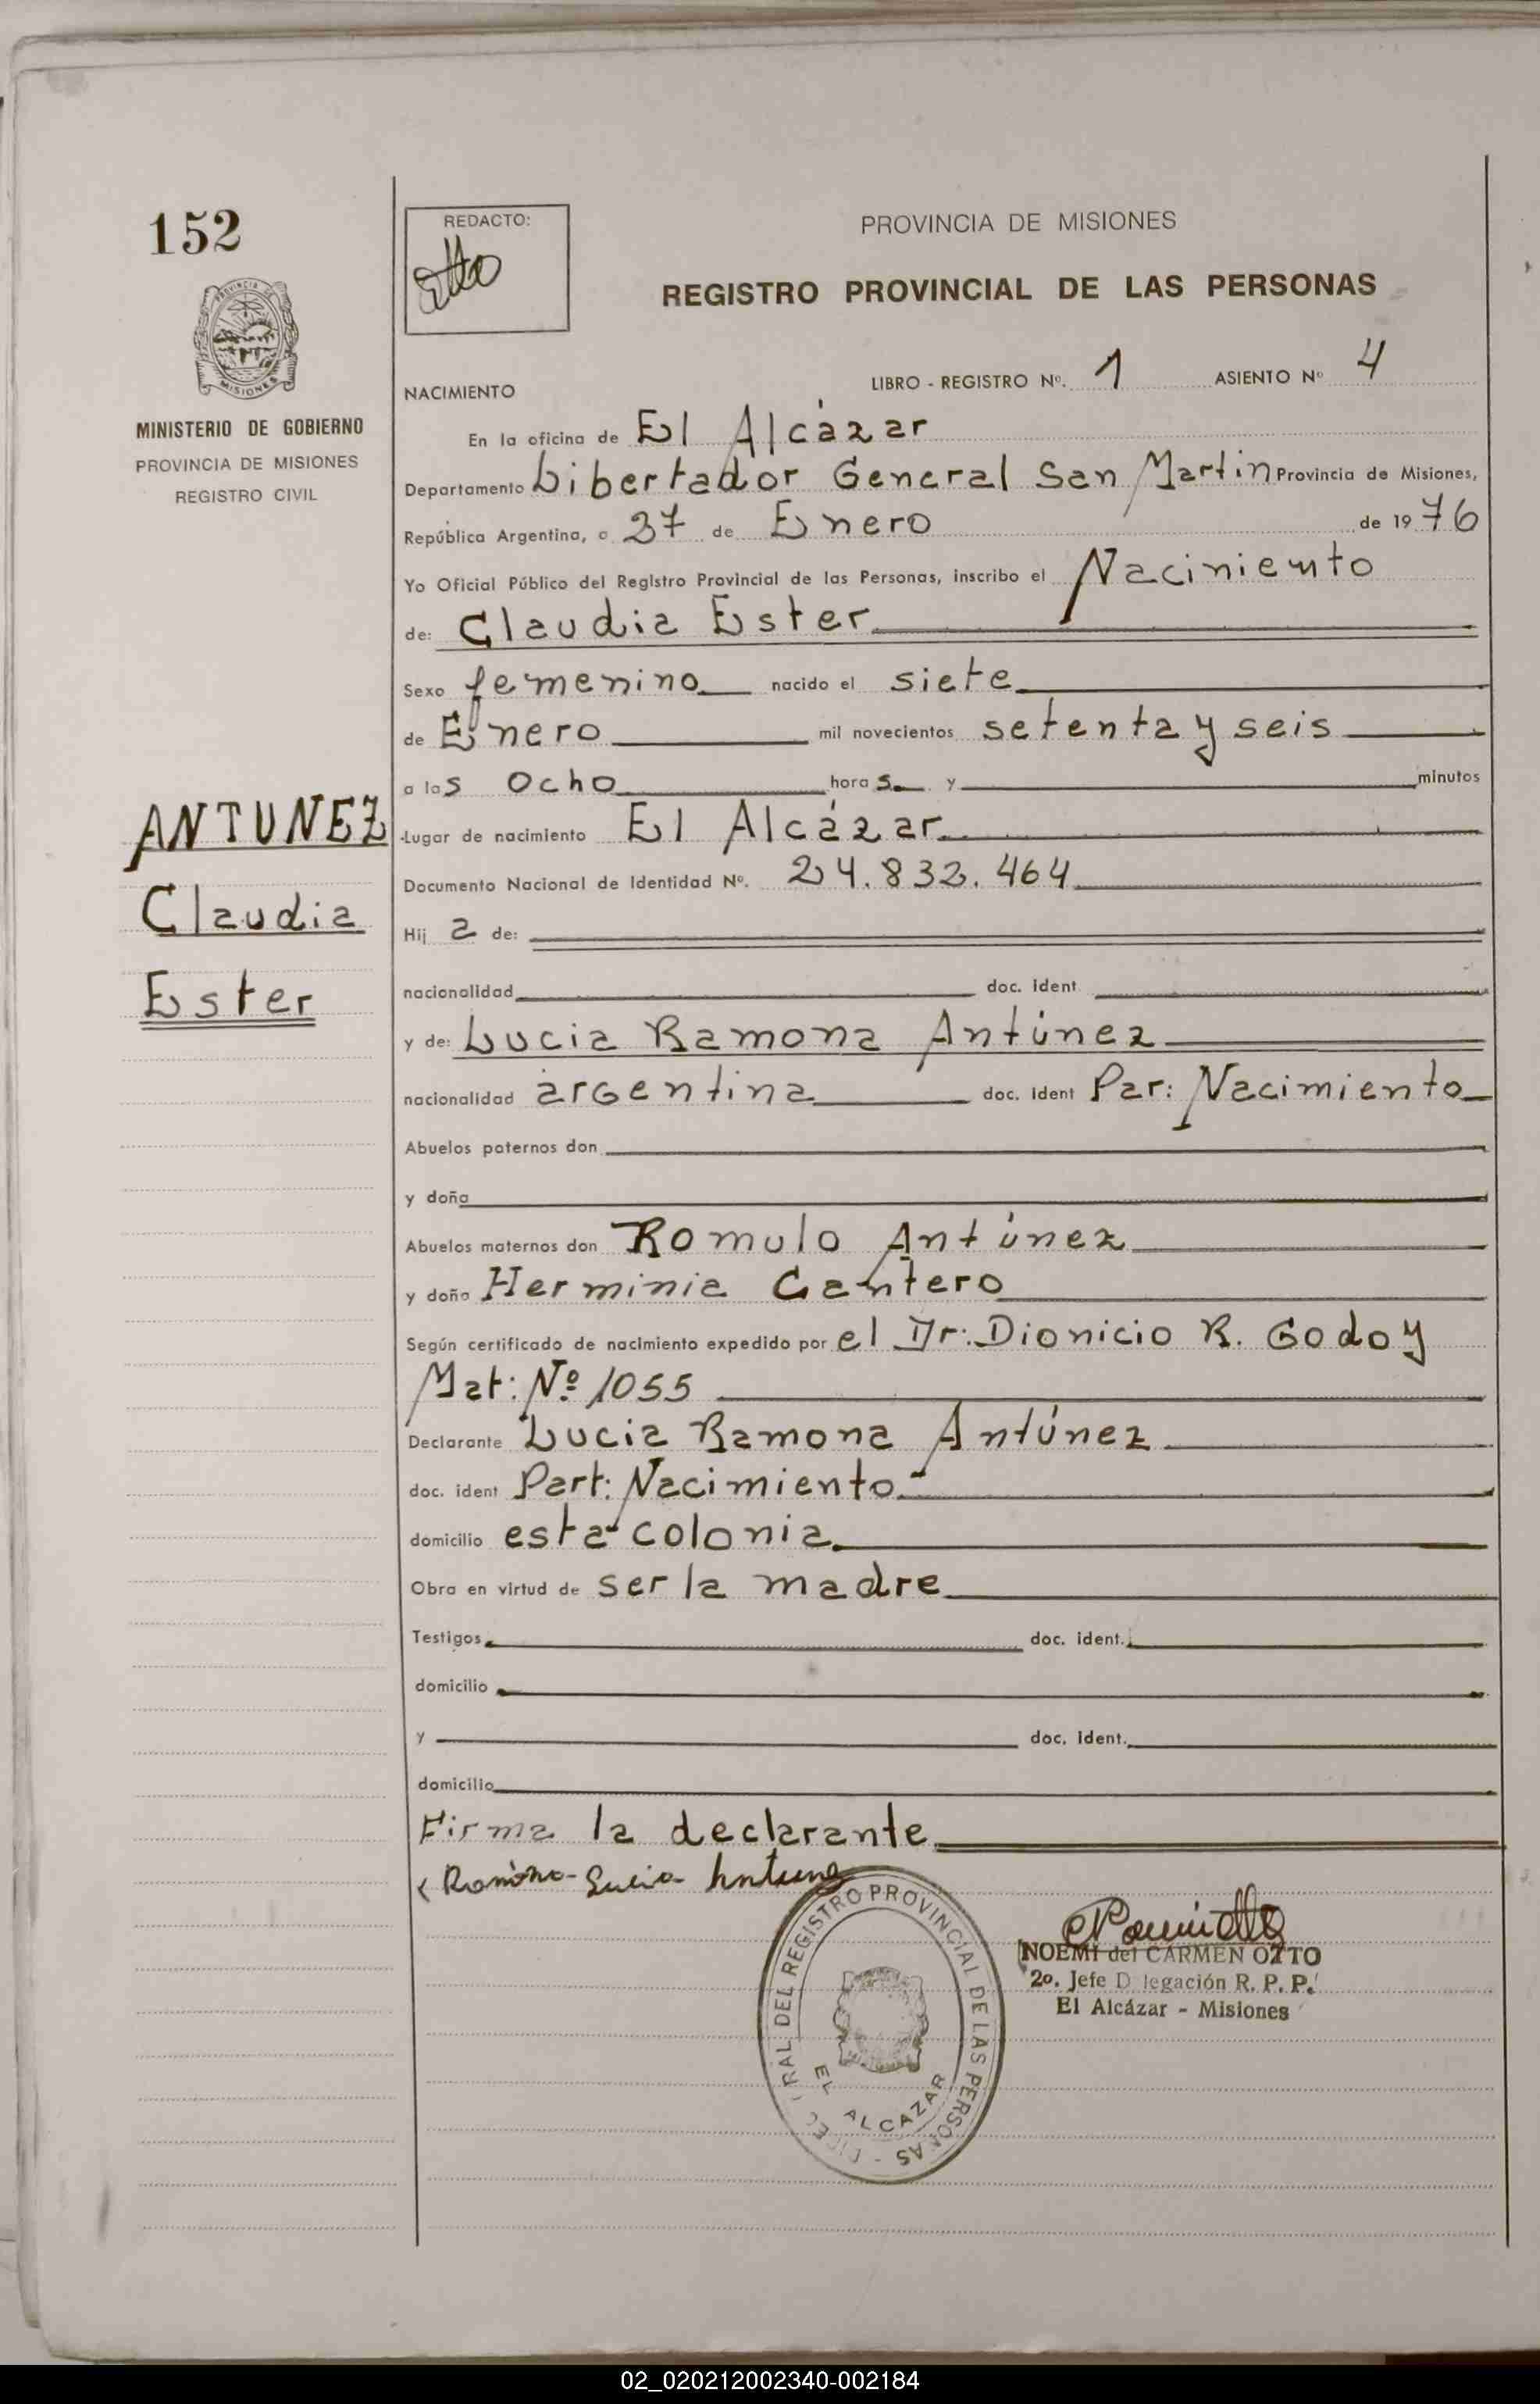 152
REDACTO:
Otto
PROVINCIA DE MISIONES
REGISTRO PROVINCIAL DE LAS PERSONAS
MISIONES
MINISTERIO DE GOBIERNO
PROVINCIA DE MISIONES
REGISTRO CIVIL
ANTUNEZ
Claudia
Ester
NACIMIENTO LIBRO - REGISTRO Nº. 1 ASIENTO Nº 4
En la oficina de El Alcázar
Departamento Libertador General San Martin Provincia de Misiones,
República Argentina, a 27 de Enero de 1976
Yo Oficial Público del Registro Provincial de las Personas, inscribo el Naciniento
de: Claudia Ester
Sexo femenino nacido el siete
de Enero mil novecientos setenta y seis
a las Ocho horas y minutos
Lugar de nacimiento El Alcázar
Documento Nacional de Identidad Nº. 24.832.464
Hija de:
nacionalidad doc. ident
y de: Lucia Ramona Antúnez
nacionalidad argentina doc. Ident Par: Nacimiento
Abuelos paternos don
y doña
Abuelos maternos don Romulo Antúnez
y doña Herminia Cantero
Según certificado de nacimiento expedido por el Dr: Dionicio R. Godoy
Mat: Nº 1055
Declarante Lucia Ramona Antúnez
doc. ident Part: Nacimiento
domicilio esta colonia
Obra en virtud de ser la madre
Testigos doc. ident.
domicilio
y doc. ident.
domicilio
Firma la declarante
Ramona Lucia Antunez
REGISTRO PROVINCIAL DE LAS PERSONAS
EL ALCAZAR
NOEMI del CARMEN OTTO
2o. Jefe D legación R. P. P.
El Alcázar - Misiones
02_020212002340-002184